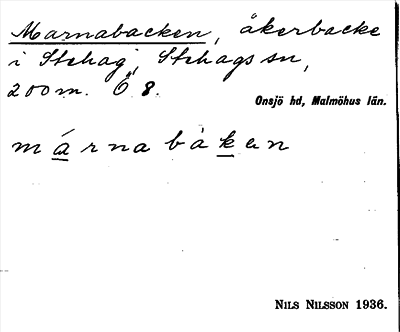 Marnabacken, åkerbacke
i Stehag, Stehags sn,
200 m. Ö 8.
Onsjö hd, Malmöhus län.
márnabàkan
NILS NILSSON 1936.